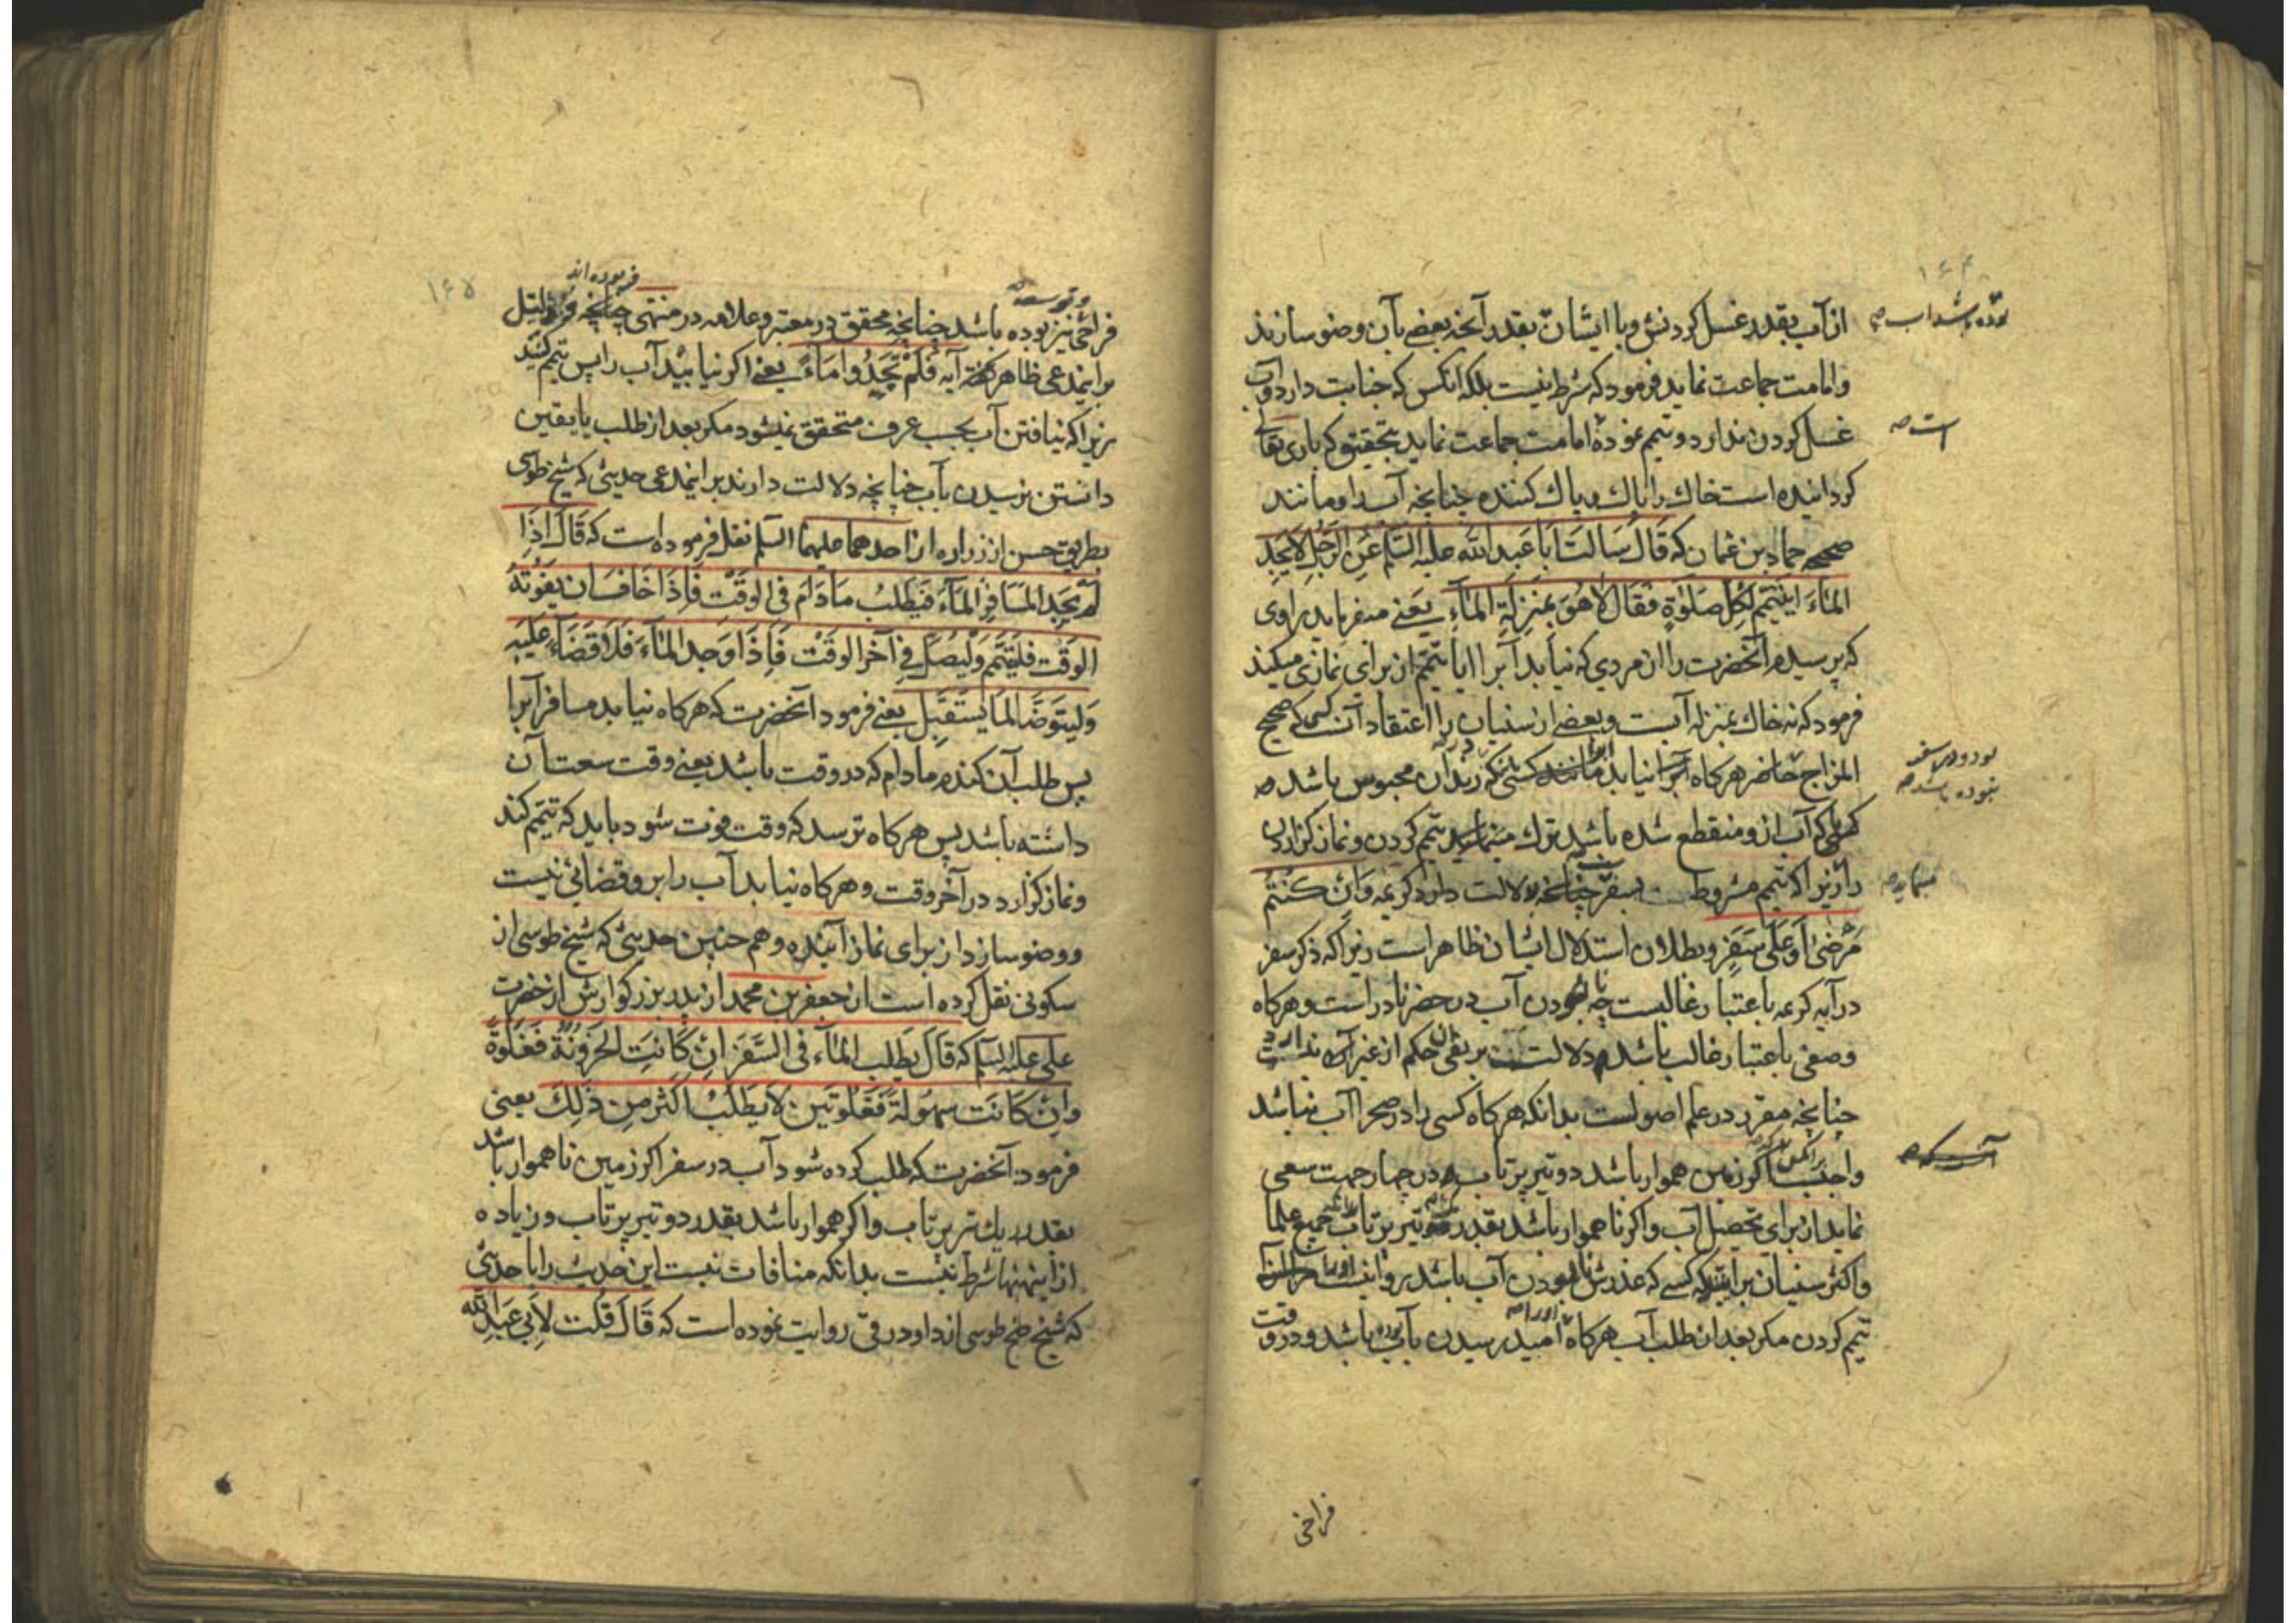 ۱۶۴
از آب بقدر غسل کردنش و با ایشان بقدر آنچه بعضی بآن وضو سازند
بوده باشد آب صح
و امامت جماعت نماید فرمود که شرط نیست بلکه انکس که جنابت دارد و آب
غسل کردن ندارد و تیمم نموده امامت جماعت نماید بتحقیق که باری تعالی
است صح
کردانیده است خاک را پاک و پاک کننده چنانچه آب را و مانند
صحیحه حماد بن عثمان که قَالَ سَالتُ اَبا عَبدالله علیه السّلم عَنِ الرّجُلِ لایَجِدُ
المٰاءَ ایتیمّم لِکلِّ صَلوٰةٍ فقَالَ لاٰ هُوَ بمنزِلَةِ المٰآءِ یعنی میفرماید راوی
که پرسیدم آنحضرت را از مردی که نیابد آبرا ایا تیمّم از برای نمازی میکند
فرمود که نه خاک بمنزله آبست و بعضی از سنیان را اعتقاد آنست که صحیح
المزاج حاضر هرکاه آبرا نیابد مانند کسی که در زندان محبوس باشد صح
بوده و در سفر نبوده باشد صح
کسی که آب ازو منقطع شده باشد ترک تیمم کردن و نماز کزاردن
را زیرا که تیمم مشروط بسفر چنانچه دلالت دارد کریمه وَاِنْ کُنتُم
مینماید صح
مَرْضیٰ اَوْ عَلیٰ سَفَرٍ و بطلان استدلال ایشان ظاهر است زیرا که ذکر سفر
در آیه کریمه باعتبار غالبست چه نابودن آب در حضر نادر است و هرکاه
وصفی باعتبار غالب باشد دلالت بر نفی حکم از غیر آن ندارد
چنانچه مقرر در علم اصولست بدانکه هرکاه کسی را در صحرا آب نباشد
واجب اگر زمین هموار باشد دو تیر پرتاب در چهار جهت سعی
نماید از برای تحصیل آب و اگر ناهموار باشد بقدر یک تیر پرتاب جمیع علما
و اکثر سنیان برانند که کسی که عذرش نابودن آب باشد روا نیست او را
تیمم کردن مکر بعد از طلب آب هرکاه او را امید رسیدن بآب بوده باشد و در وقت
فراخی
۱۶۵
فراخی و توسعه نیز بوده باشد چنانچه محقق در معتبر و علامه در منتهی فرموده اند چنانچه
برایندعی ظاهر آیه فَلَمْ تَجِدُوا مَاءً یعنی اکر نیابید آب را پس تیمم کنید
زیرا که نیافتن آب بحسب عرف متحقق نمیشود مکر بعد از طلب یا یقین
داشتن نرسیدن بآب چنانچه دلالت دارند برایندعی حدیثی که شیخ طوسی
بطریق حسن از زراره از احدهما علیهما السلم نقل فرموده است که قَالَ اِذَا
لم یَجِدِ المسَافِرُ المٰآءَ فَیَطلُبُ مَادَامَ فی الوَقْتِ فَاِذَا خَافَ اَن یَفوُتَهُ
الوَقْت فلیَتیَمّم وَلیُصَلِّ فی آخر الوَقْتِ فَاِذَا وَجد المٰآءَ فَلاَ قَضَاءَ عَلَیهِ
وَلیَتَوَضّأ لمَا یَستَقبِل یعنی فرمود آنحضرت که هرکاه نیابد مسافر آبرا
پس طلب آن کند مادام که در وقت باشد یعنی وقت سعت آن
داشته باشد پس هرکاه ترسد که وقت فوت شود باید که تیمم کند
و نماز کزارد در آخر وقت و هرکاه نیابد آب را برو قضائی نیست
و وضو سازد از برای نماز آینده و هم چنین حدیثی که شیخ طوسی از
سکونی نقل کرده است از جعفر بن محمد از پدر بزرکوارش از حضرت
علی علیه السلم که قَالَ یَطلب المٰآء فی السَّفَر اِنْ کَانَتِ الحزُونَةُ فَغَلوَةً
وَاِنْ کَانَت سهُولَةً فَغَلوَتَین لاٰ یَطلُبُ اَکثَر مِن ذٰلِکَ یعنی
فرمود آنحضرت که طلب کرده شود آب در سفر اکر زمین ناهموار باشد
بقدر یک تیر پرتاب و اکر هموار باشد بقدر دو تیر پرتاب و زیاده
از اینها شرط نیست بدانکه منافات نیست این حدیث را با حدیثی
که شیخ طوسی از داود رقی روایت نموده است که قَالَ قُلت لاَبی عَبدِ الله